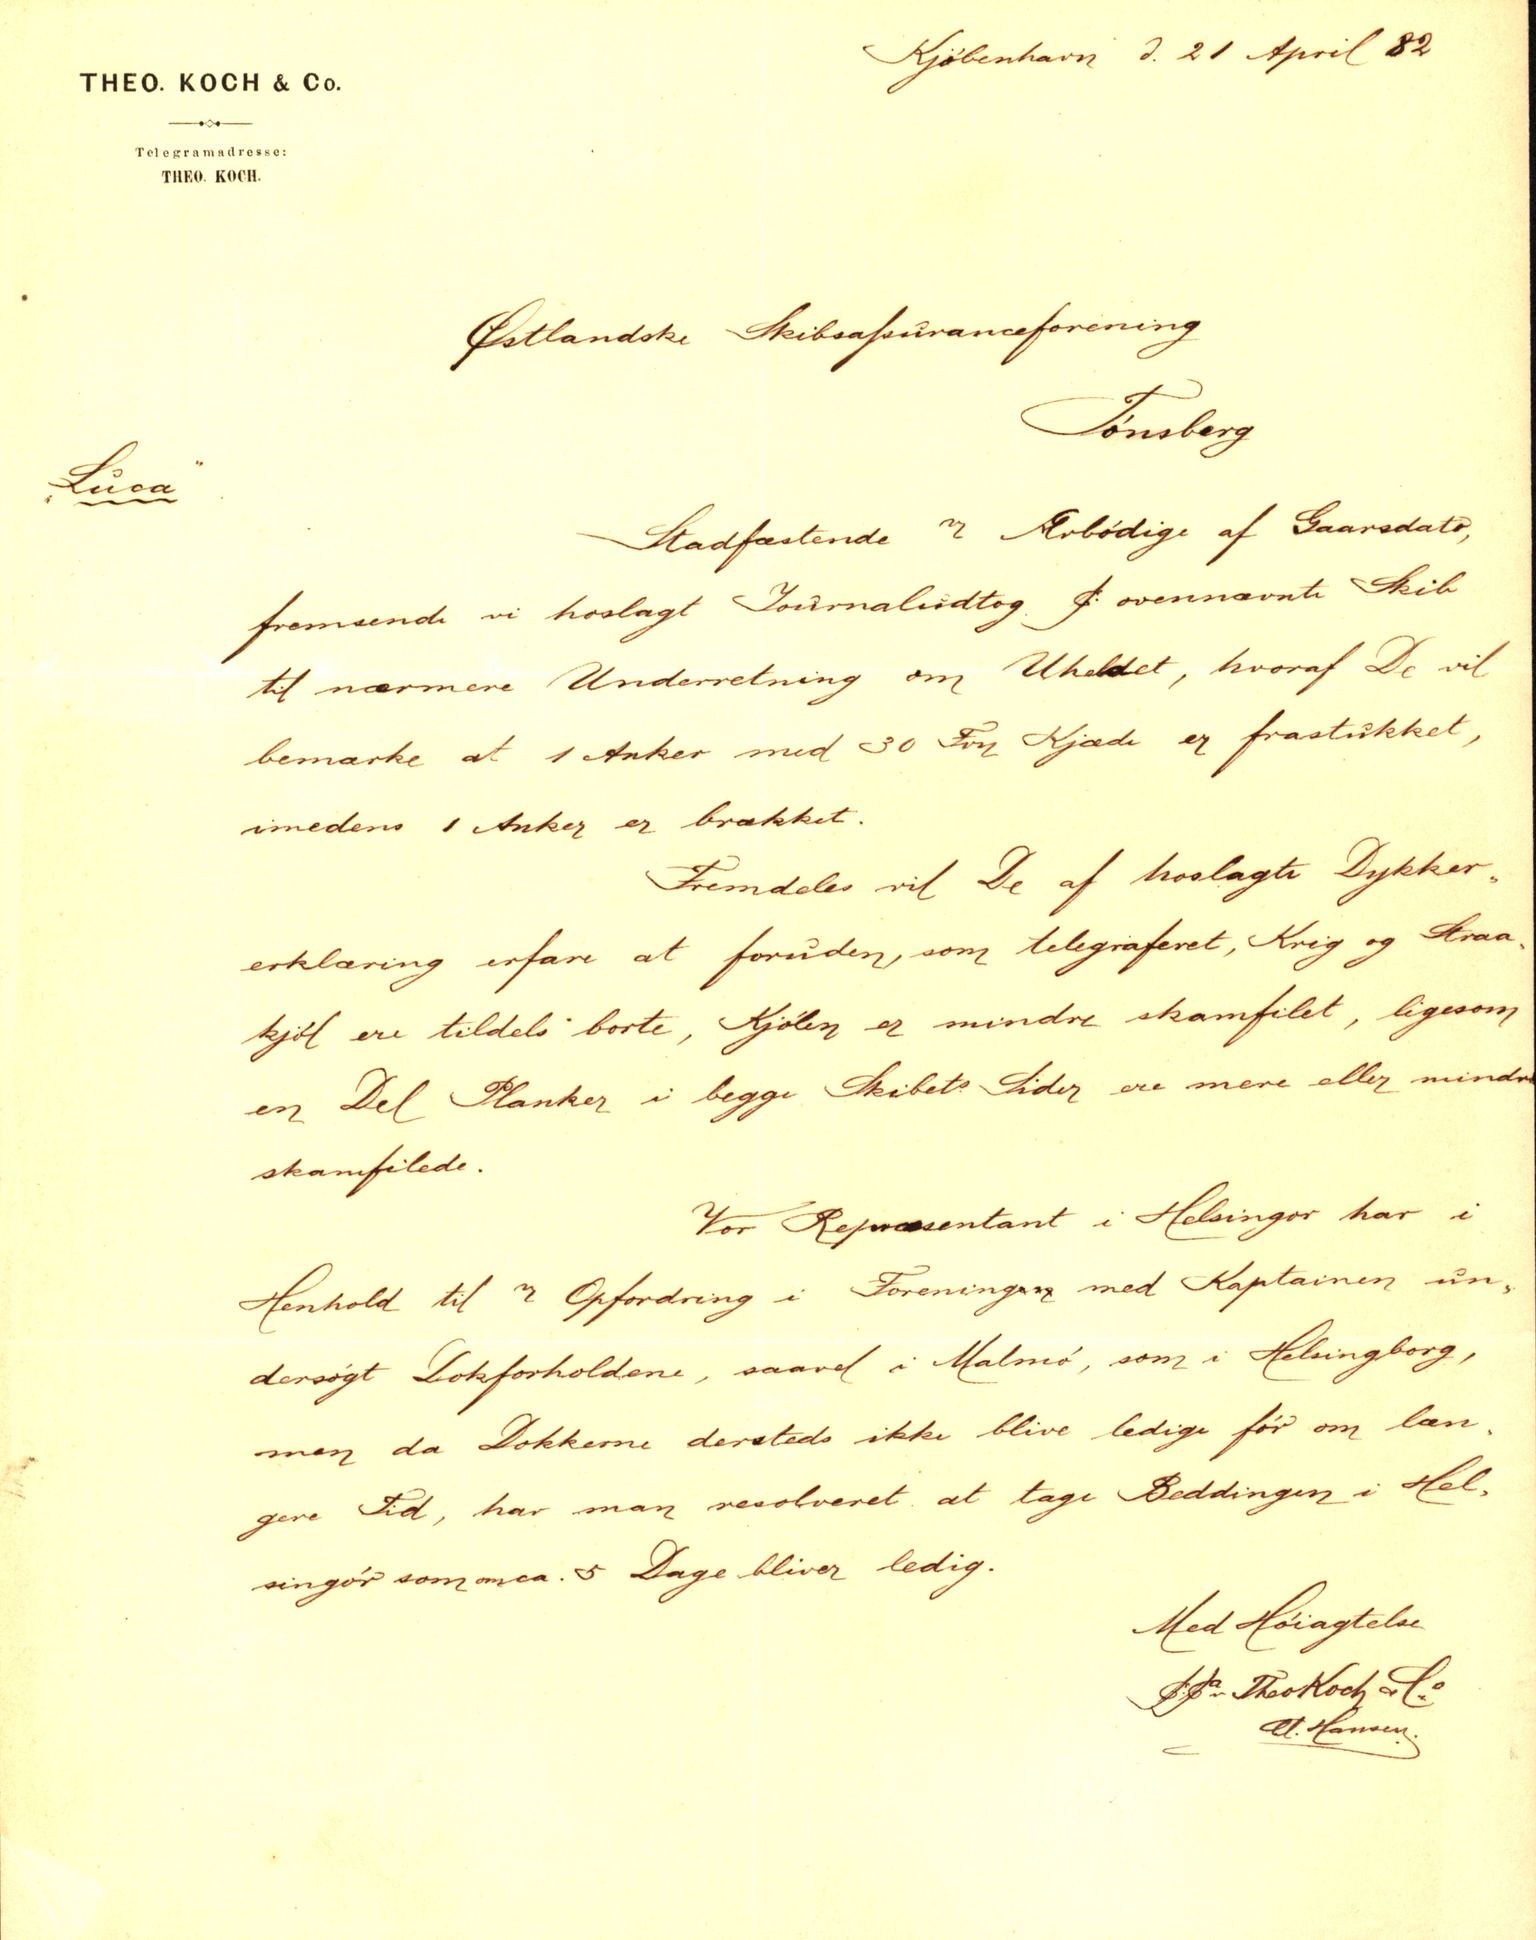 Kjöbenhavn d. 21 April 82
THEO. KOCH & Co.
Telegramadresse:
THEO. KOCH.
Østlandske Skibsassuranceforening
Tönsberg
„Luca"
Stadfæstende Ærbödige af Gaarsdato,
fremsende vi hoslagt Journaludtog p. ovennævnte Skib
til nærmere Underretning om Uheldet, hvoraf De vil
bemærke at 1 Anker med 30 Fvn Kjæde er frastukket,
imedens 1 Anker er brækket.
Fremdeles vil De af hoslagte Dykker„
erklæring erfare at foruden, som telegraferet, Krig og Straa„
kjöl ere tildels borte, Kjölen er mindre skamfilet, ligesom
en Del Planker i begge Skibets Sider ere mere eller mindre
skamfilede.
Vor Repræsentant i Helsingor har i
Henhold til Opfordring i Foreningen med Kaptainen un„
dersögt Dokforholdene, saavel i Malmö, som i Helsingborg,
men da Dokkerne dersteds ikke blive ledige för om læn„
gere Tid, har man resolveret at tage Beddingen i Hel„
singör som om ca. 5 Dage bliver ledig.
Med Höiagtelse
p.pa. Theo Koch & Co
Hansen.